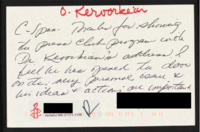 O. Kervorkian
C-Span - Thanks for showing
the press club program with
Dr. Kevorkian's address! I
feel he has opened the door
on this very personal issue &
his ideas & actions are important